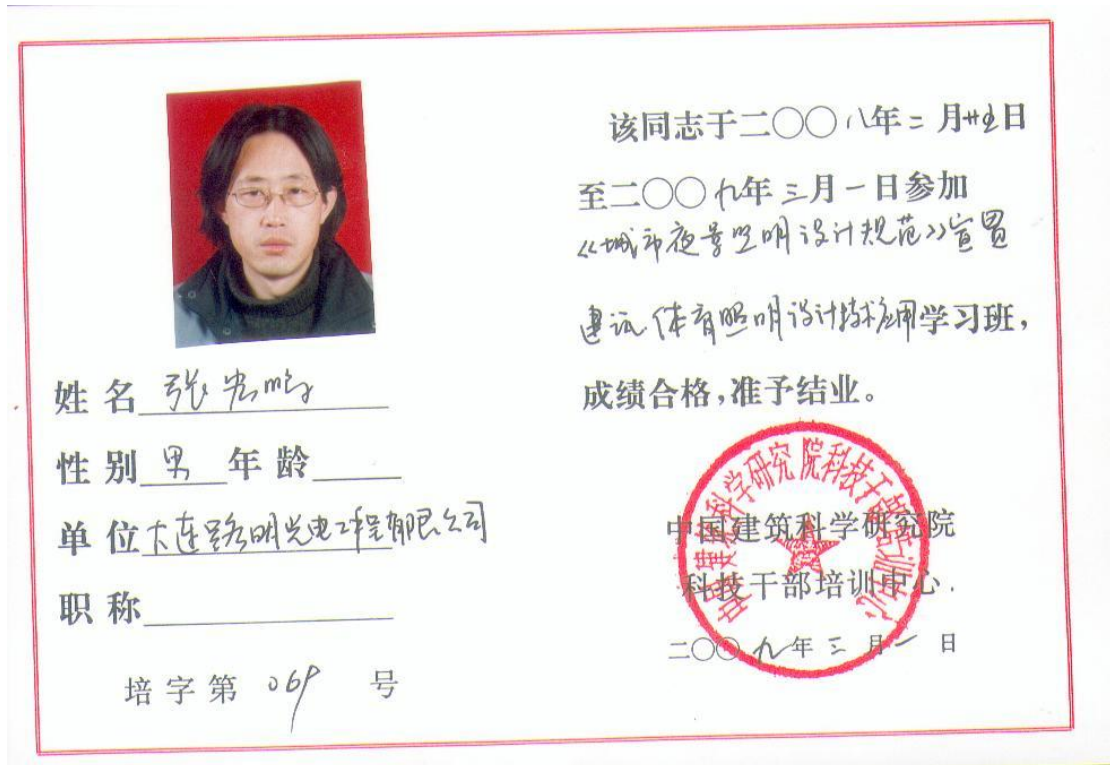 姓名 张宏鸣
性别 男 年龄
单位 大连路明光电工程有限公司
职称
培字第 069 号
该同志于二〇〇八年二月廿七日
至二〇〇九年三月一日参加
《城市夜景照明设计规范》宣贯
建设体育照明设计技术应用学习班，
成绩合格，准予结业。
中国建筑科学研究院
科技干部培训中心
二〇〇九年三月一日
中国建筑科学研究院科技干部培训中心